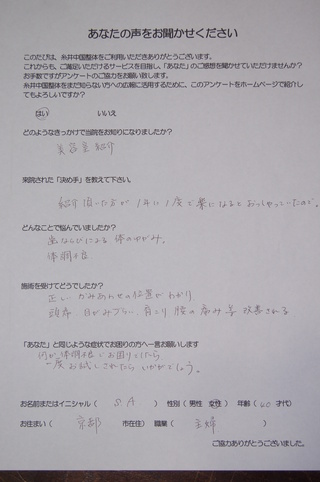 あなたの声をお聞かせください
このたびは、糸井中国整体をご利用いただきありがとうございます。
これからも、ご満足いただけるサービスを目指し、「あなた」のご感想を聞かせていただけませんか?
お手数ですがアンケートのご協力をお願い致します。
糸井中国整体をまだ知らない方への広報に活用するために、このアンケートをホームページで紹介し
てもよろしいですか?
はい　いいえ
どのようなきっかけで当院をお知りになりましたか?
美容室紹介
来院された「決め手」を教えて下さい。
紹介頂いた方が 1年に1度で楽になるとおっしゃっていたので。
どんなことで悩んでいましたか?
歯ならびによる 体のゆがみ。
体調不良
施術を受けてどうでしたか?
正しい かみあわせの位置がわかり
頭痛 目がかすみ 肩こり 腰の痛み等 改善される
「あなた」と同じような症状でお困りの方へ一言お願いします
何か体調不良でお困りでしたら
一度お試しされたらいかがでしょう。
お名前またはイニシャル（ S.A ） 性別（ 男性 女性 ） 年齢（ 40 才代）
お住まい（ 京都 市在住） 職業（ 主婦 ）
ご協力ありがとうございました。